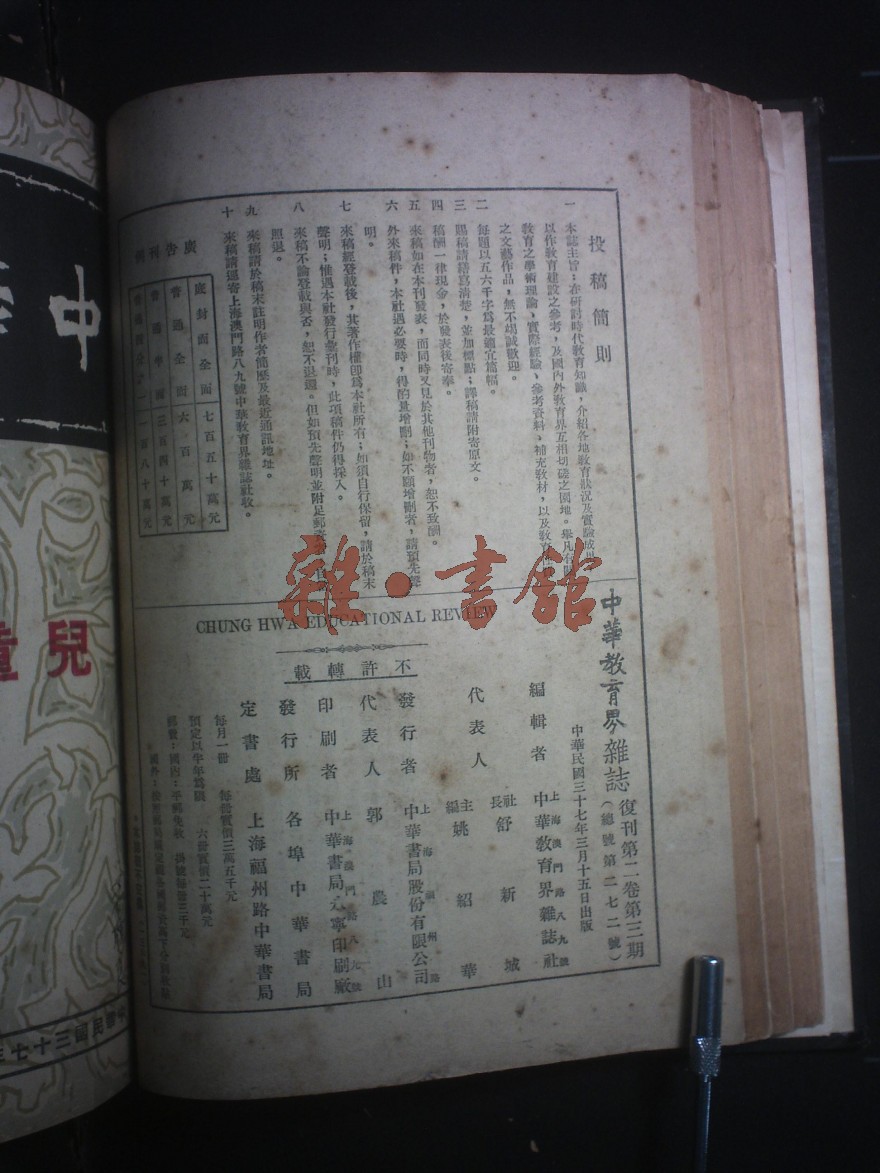 投稿簡則
一 本誌主旨：在研討時代教育知識，介紹各地教育狀況及實驗成
以作教育建設之參考，及國內外教育界互相切磋之園地。舉凡有
教育之學術理論，實際經驗，參考資料，補充教材，以及教育
之文藝作品，無不竭誠歡迎。
二 每題以五六千字爲最適宜篇幅。
三 賜稿請繕寫清楚，並加標點；譯稿請附寄原文。
四 稿酬一律現金，於發表後寄奉。
五 來稿如在本刊發表，而同時又見於其他刊物者，恕不致酬。
六 外來稿件，本社遇必要時，得酌量增刪；如不願增刪者，請預先聲
明。
七 來稿經登載後，其著作權即爲本社所有；如須自行保留，請於稿末
聲明；惟遇本社發行彙刊時，此項稿件仍得採入。
八 來稿不論登載與否，恕不退還。但如預先聲明並附足郵
照退。
九 來稿請於稿末註明作者簡歷及最近通訊地址。
十 來稿請逕寄上海澳門路八九號中華教育界雜誌社收。
廣告刊
底封面全面 七百五十萬元
普通全面 六百萬元
普通半面 三百四十萬元
一百八十萬元
雜·書館
CHUNG HWA EDUCATIONAL REVIEW
中華教育界雜誌 復刊第二卷第三期
（總號第二七二號）
中華民國三十七年三月十五日出版
編輯者 上海澳門路八九號
中華教育界雜誌社
代表人 社長 舒新城
主編 姚紹華
發行者 上海福州路
中華書局股份有限公司
代表人 郭農山
印刷者 上海澳門路八九號
中華書局永寧印刷廠
發行所 各埠中華書局
定書處 上海福州路中華書局
不許轉載
每月一冊 每份實價三萬五千元
預定以半年爲限 六份實價二十萬元
郵費：國內：平郵免收 掛號每份三千元
國外：
中
兒童
中華民國三十七年